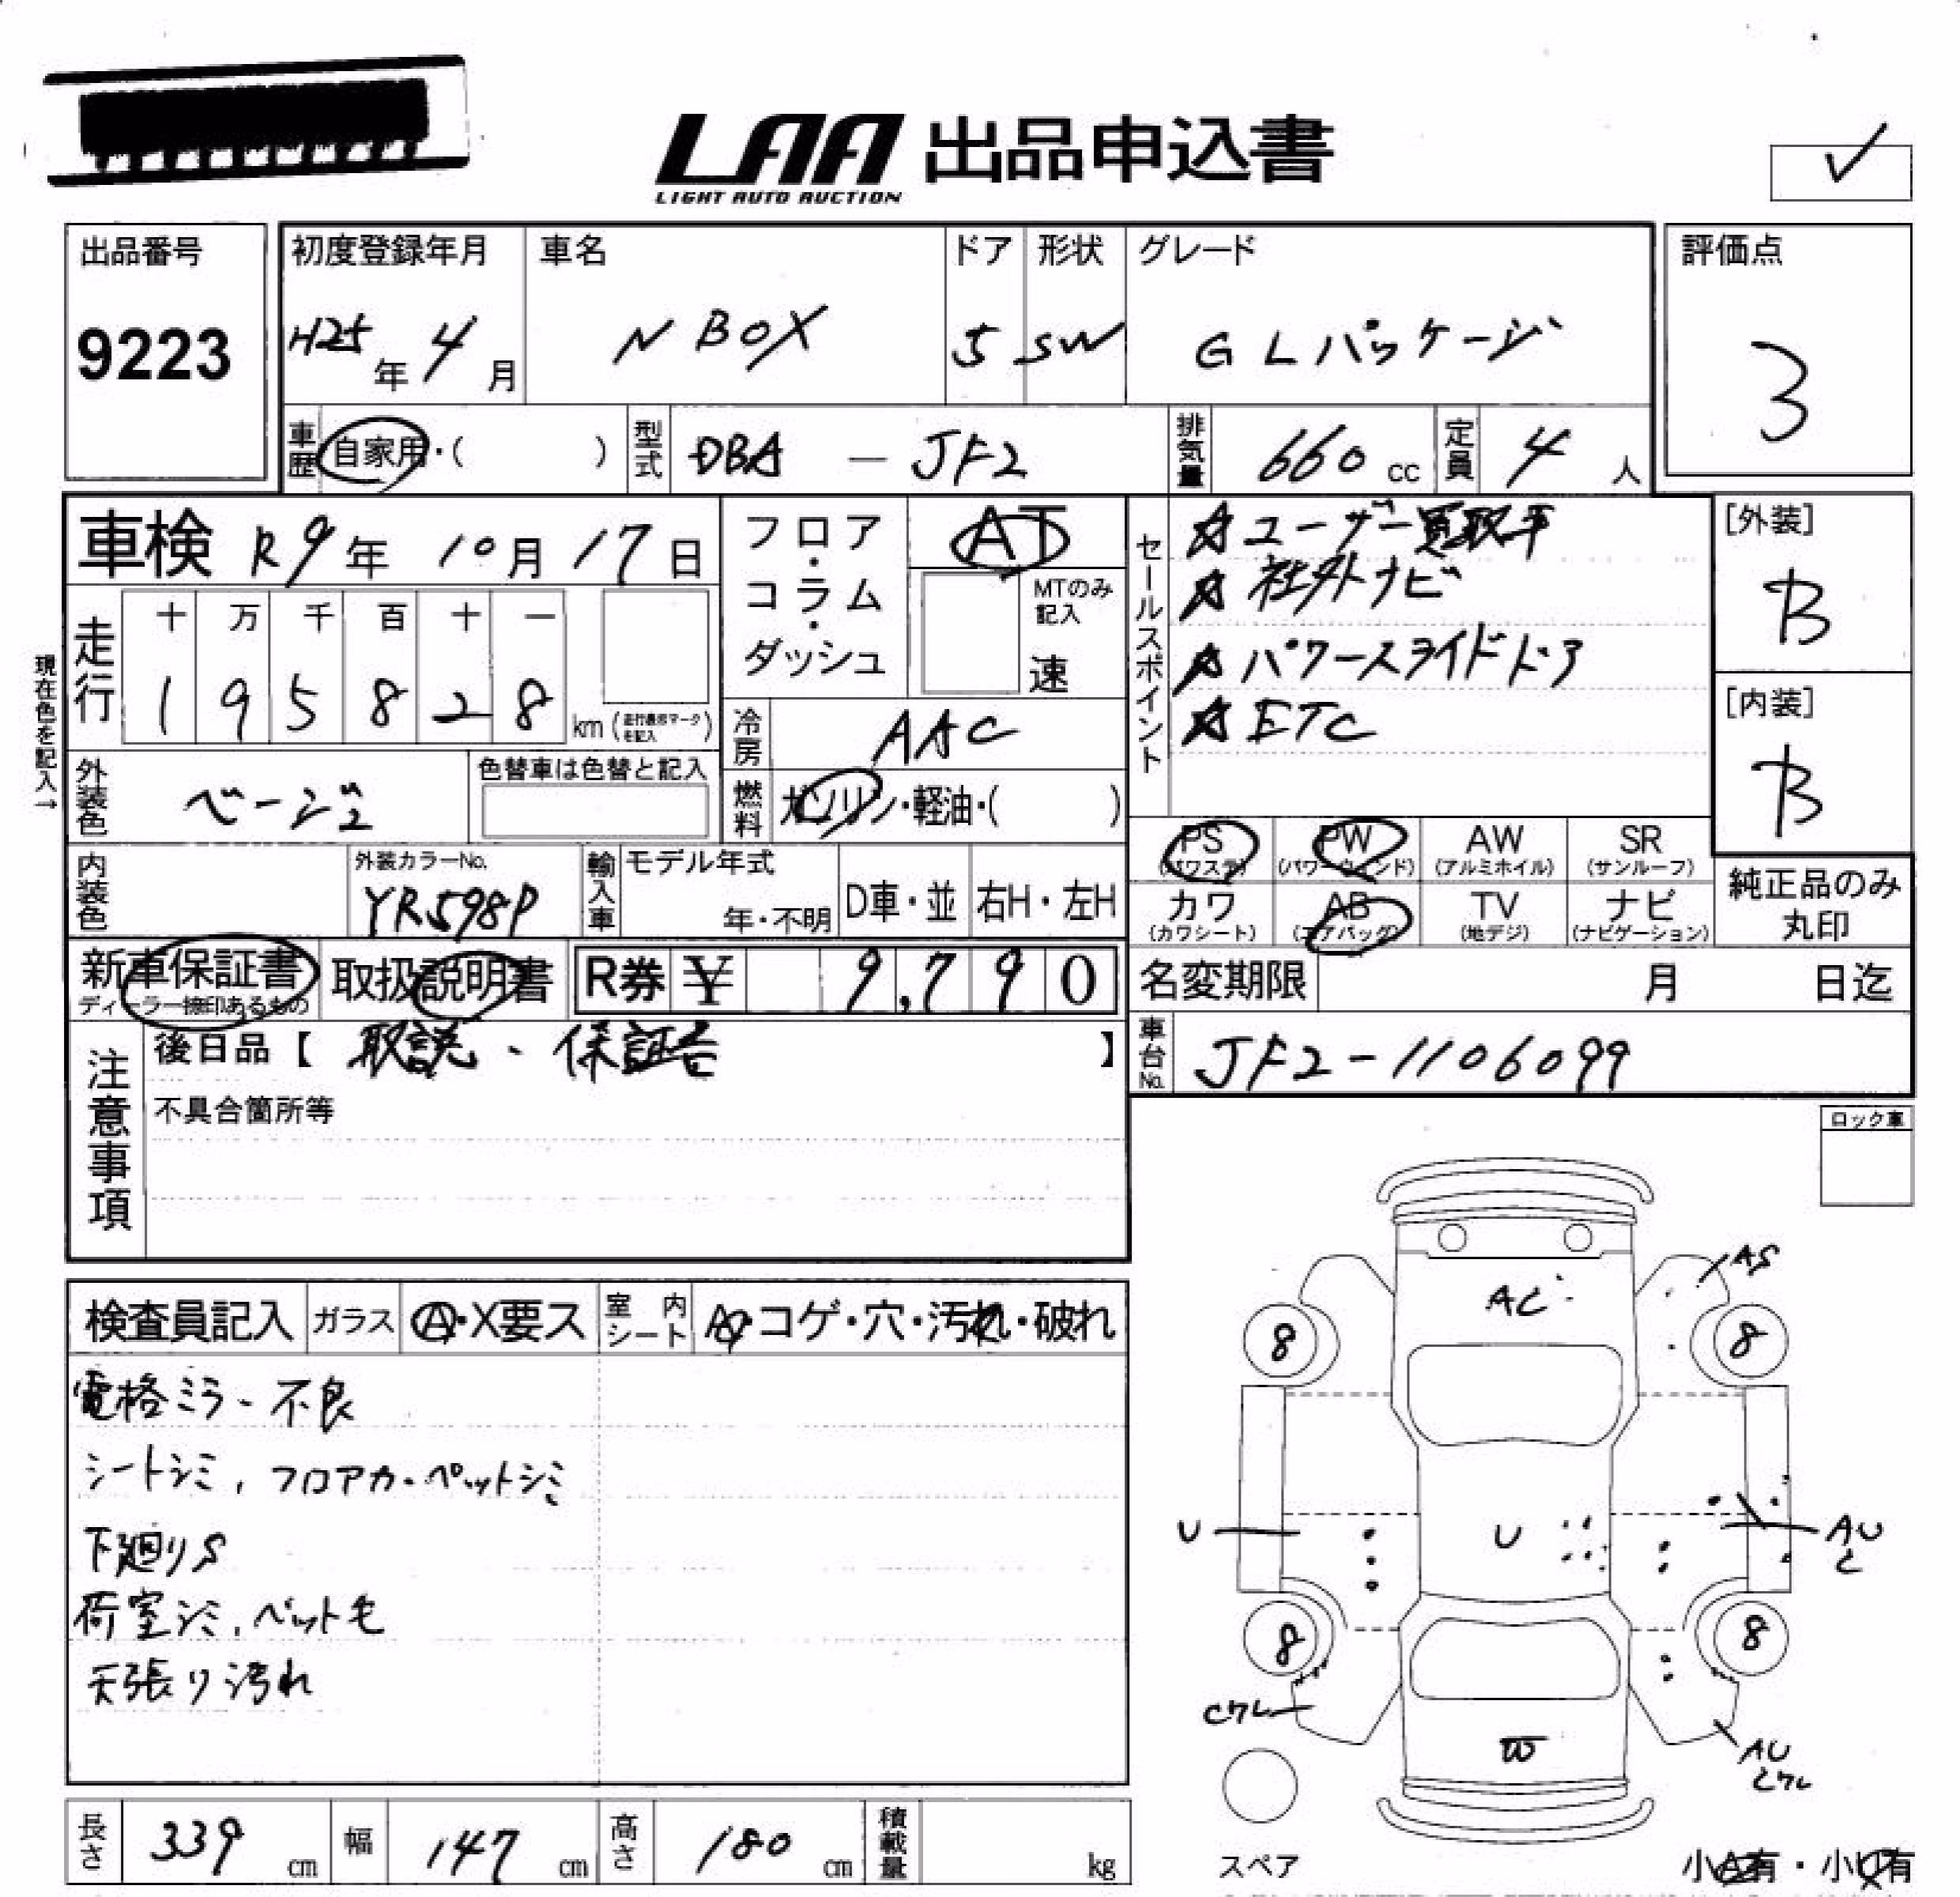 LAA 出品申込書
LIGHT AUTO AUCTION
出品番号
9223
初度登録年月
H25年4月
車名
N BOX
ドア
5
形状
SW
グレード
G Lパッケージ
評価点
3
車歴
自家用・( )
型式
DBA - JF2
排気量
660 cc
定員
4 人
車検 R9年 10月 17日
フロア・コラム・ダッシュ
AT
MTのみ記入
速
セールスポイント
☆ユーザー買取車
☆社外ナビ
☆パワースライドドア
☆ETC
[外装]
B
[内装]
B
現在色を記入→
走行
十 万 千 百 十 一
1 9 5 8 2 8 km (走行表示マークを記入)
冷房
AAC
外装色
ベージュ
色替車は色替と記入
燃料
ガソリン・軽油・( )
PS (パワステ)
PW (パワーウィンド)
AW (アルミホイル)
SR (サンルーフ)
カワ (カワシート)
AB (エアバッグ)
TV (地デジ)
ナビ (ナビゲーション)
純正品のみ丸印
内装色
外装カラーNo.
YR598P
輸入車
モデル年式
年・不明
D車・並
右H・左H
新車保証書
ディーラー捺印あるもの
取扱説明書
R券 ¥ 9,790
名変期限 月 日迄
車台No.
JF2-1106099
注意事項
後日品【 取説、保証書 】
不具合箇所等
ロック車
検査員記入
ガラス
A・X要ス
室内シート
A・コゲ・穴・汚れ・破れ
電格ミラー不良
シートシミ, フロアカーペットシミ
下廻りS
荷室シミ, ペット毛
天張り汚れ
AC
AS
8
8
U
U
AU
C
8
8
Cワレ
W
AU
Cワレ
スペア
小A有・小U有
長さ 339 cm
幅 147 cm
高さ 180 cm
積載量 kg